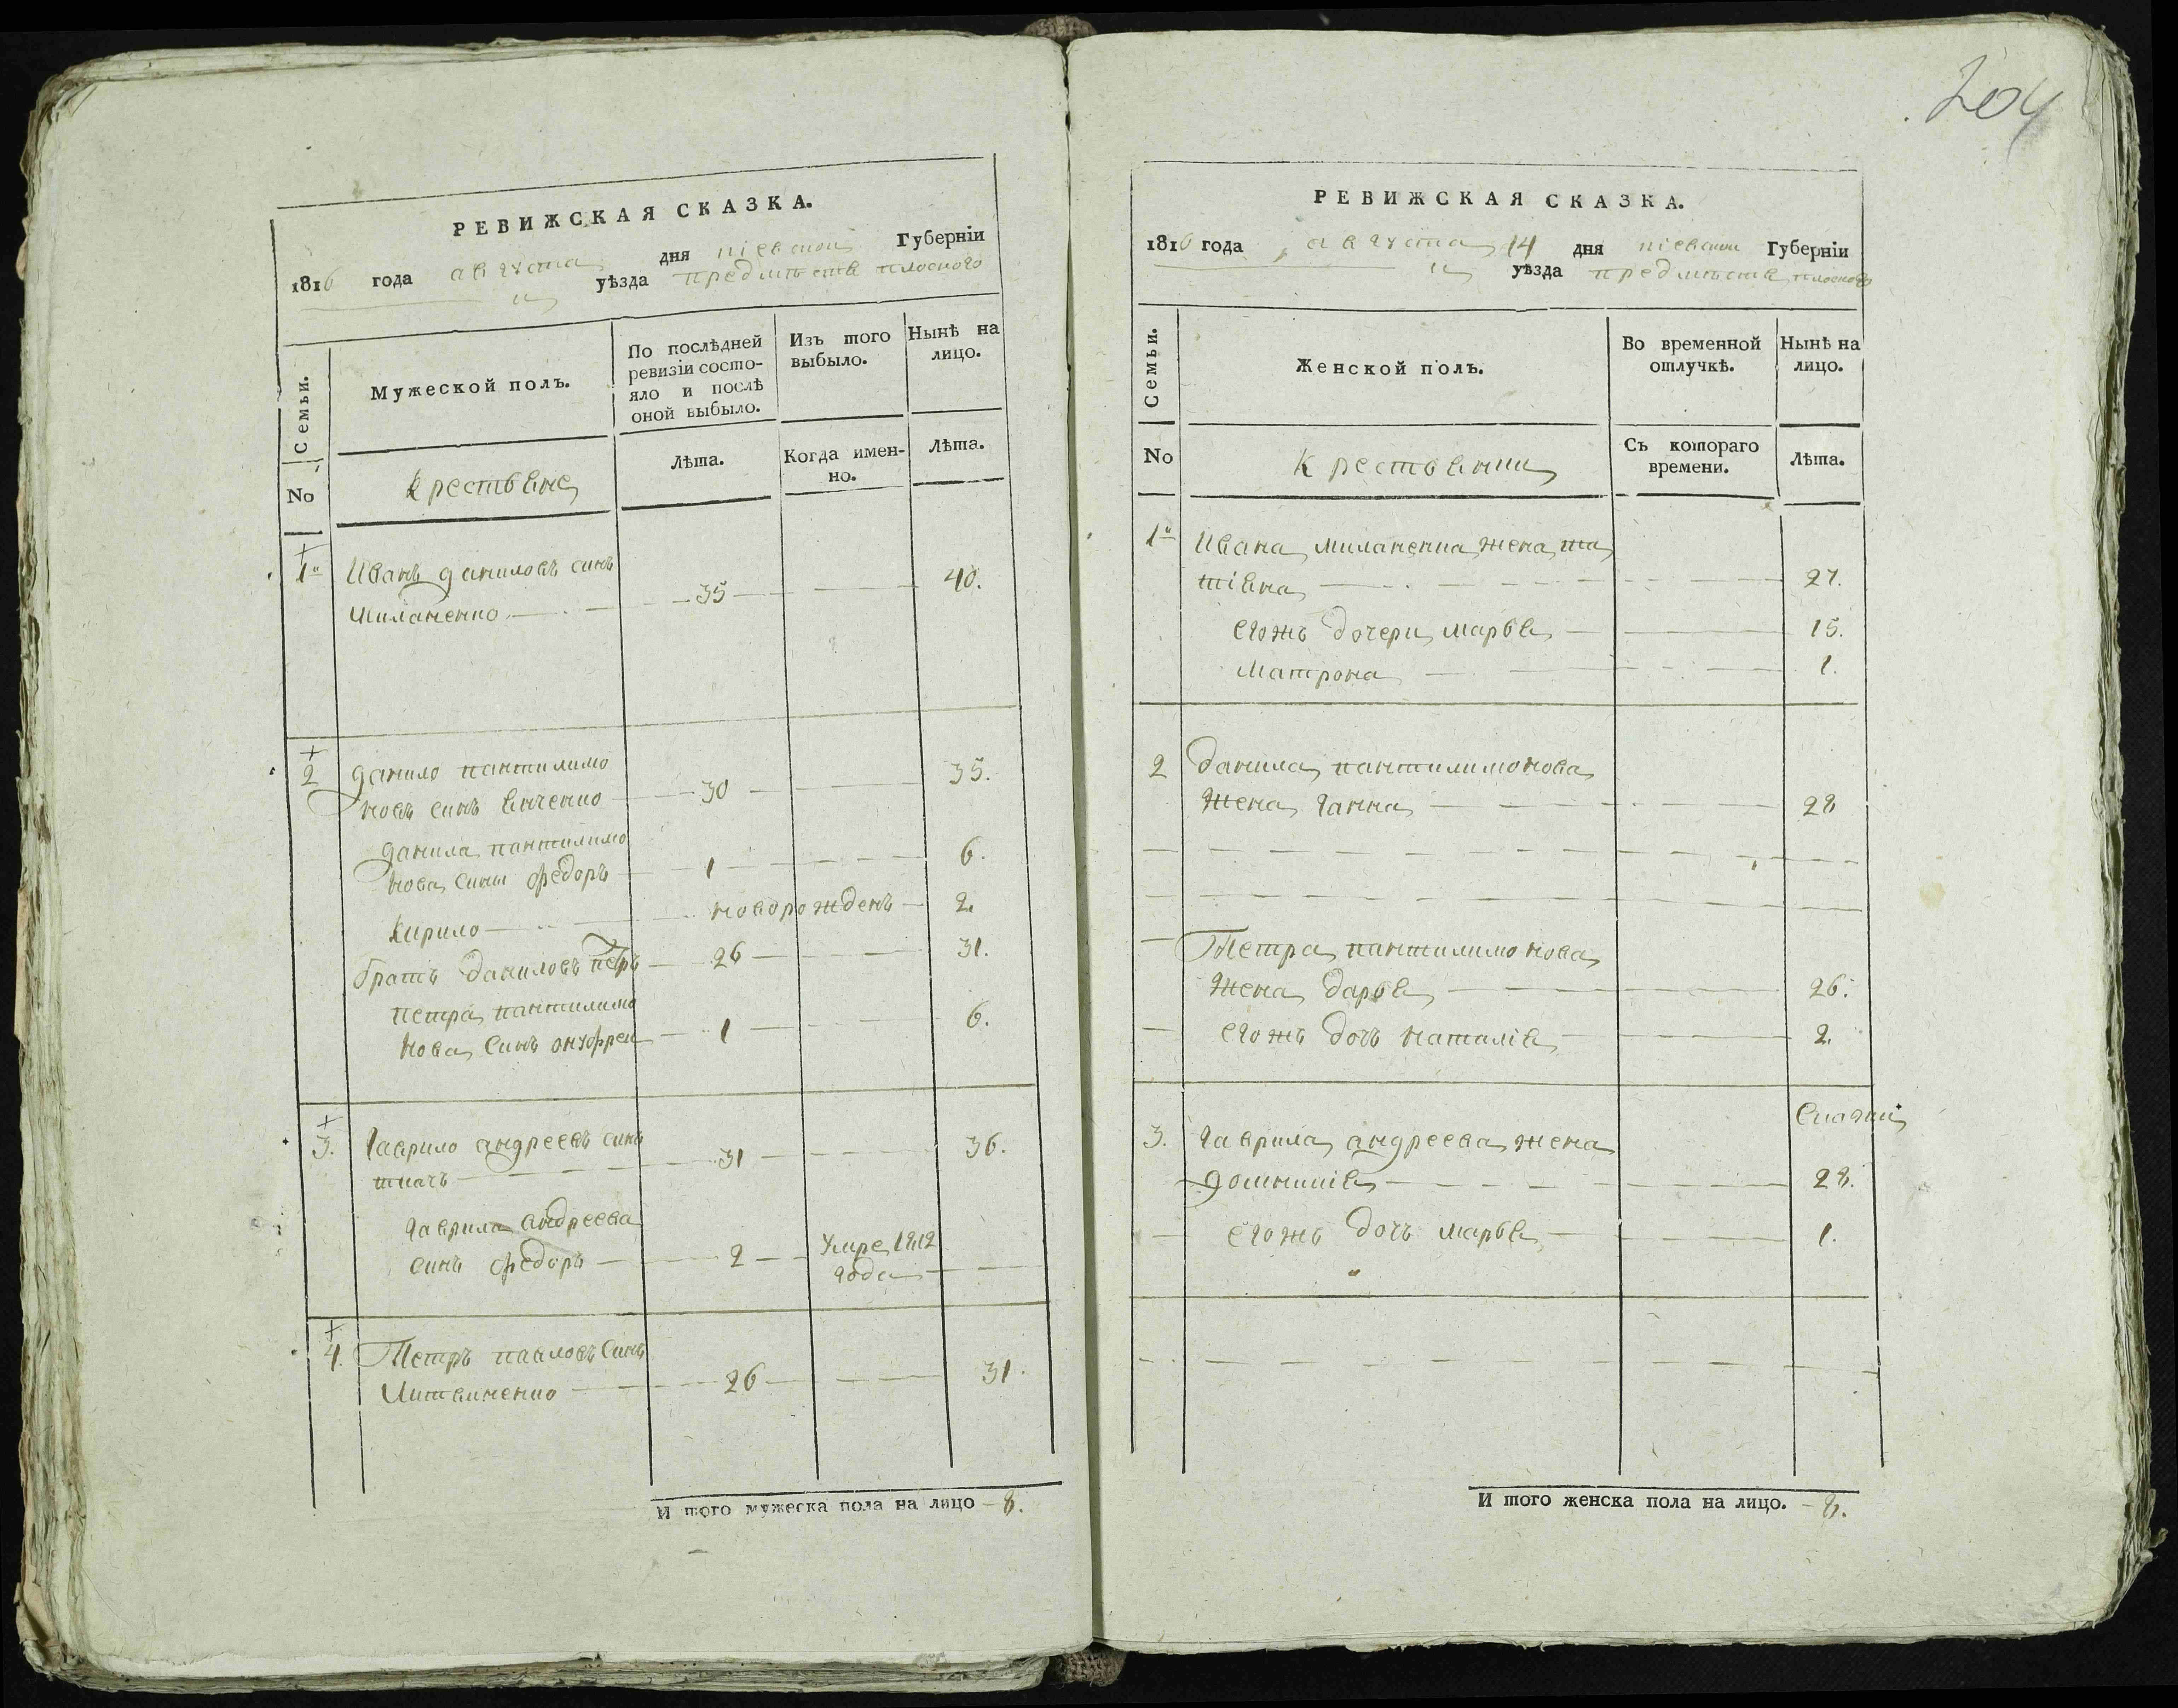 204
РЕВИЖСКАЯ СКАЗКА.
1816 года августа дня кіевской Губерніи
уѣзда предмѣстя плоского
Семьи.
Мужеской полъ.
По послѣдней ревизіи состо-
яло и послѣ
оной выбыло.
Изъ того
выбыло.
Нынѣ на
лицо.
No
Крестьяне
Лѣта.
Когда имен-
но.
Лѣта.
1 Иванъ даниловъ синъ
Миланенко 35 40.
2 Данило пантилимо
новъ синъ 30 35.
данила пантилимо
нова сины федоръ 1 6.
Кирило новорожденъ 2.
братъ даниловъ петръ 26 31.
петра пантилимо
нова синъ онуфрей 1 6.
3. Гаврило андреевъ синъ
ткачъ 31 36.
гаврила андреева
синъ федоръ 2 Умре 1812
года
4. Петръ павловъ синъ
Литвиненко 26 31.
И того мужеска пола на лицо 8.
РЕВИЖСКАЯ СКАЗКА.
1816 года августа 14 дня кіевской Губерніи
уѣзда предмѣстя плоского
Семьи.
Женской полъ.
Во временной
отлучкѣ.
Нынѣ на
лицо.
No
Крестьянки
Съ котораго
времени.
Лѣта.
1 Ивана миланенка жена та
тіяна 27.
егожъ дочери марья 15.
Матрона 1.
2 Данила пантилимонова
жена ганна 28
Петра пантилимонова
жена дарья 26.
егожъ дочъ наталія 2.
3. гаврила андреева жена
домникія 28.
егожъ дочъ марья 1.
И того женска пола на лицо. 8.